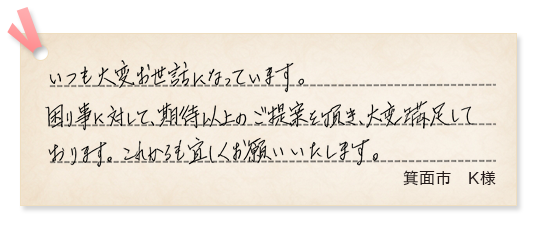 いつも大変お世話になっています。
困り事に対して、期待以上のご提案を頂き、大変満足して
おります。これからも宜しくお願いいたします。
箕面市　K様